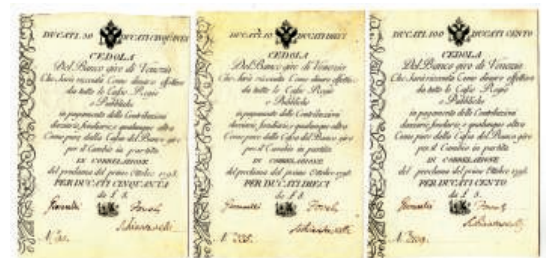 DUCATI 50 DUCATI CINQUANTA
CEDOLA
Del Banco giro di Venezia
Che Sarà ricevuta Come danaro effettivo
da tutte le Casse Regie
e Pubbliche
in pagamento delle Contribuzioni
daziarie, fondiarie, e qualunque altra
Come pure dalla Cassa del Banco giro
per il Cambio in partita
IN CORRELAZIONE
del proclama del primo Ottobre 1798
PER DUCATI CINQUANTA
da £ 8.
DUCATI 10 DUCATI DIECI
CEDOLA
Del Banco giro di Venezia
Che Sarà ricevuta Come danaro effettivo
da tutte le Casse Regie
e Pubbliche
in pagamento delle Contribuzioni
daziarie, fondiarie, e qualunque altra
Come pure dalla Cassa del Banco giro
per il Cambio in partita
IN CORRELAZIONE
del proclama del primo Ottobre 1798
PER DUCATI DIECI
da £ 8
DUCATI 100 DUCATI CENTO
CEDOLA
Del Banco giro di Venezia
Che Sarà ricevuta Come danaro effettivo
da tutte le Casse Regie
e Pubbliche
in pagamento delle Contribuzioni
daziarie, fondiarie, e qualunque altra
Come pure dalla Cassa del Banco giro
per il Cambio in partita
IN CORRELAZIONE
del proclama del primo Ottobre 1798
PER DUCATI CENTO
da £ 8.